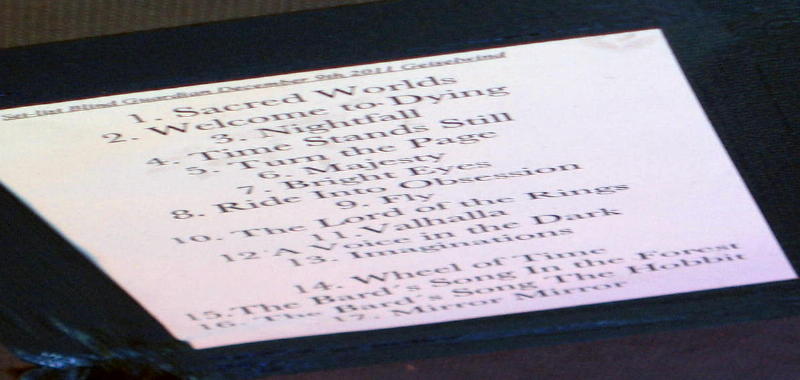 Set-list Blind Guardian December 9th 2011 Geiselwind
1. Sacred Worlds
2. Welcome to Dying
3. Nightfall
4. Time Stands Still
5. Turn the Page
6. Majesty
7. Bright Eyes
8. Ride Into Obsession
9. Fly
10. The Lord of the Rings
11 Valhalla
12 A Voice in the Dark
13. Imaginations
14. Wheel of Time
15.The Bard's Song In the Forest
16. The Bard's Song The Hobbit
17. Mirror Mirror